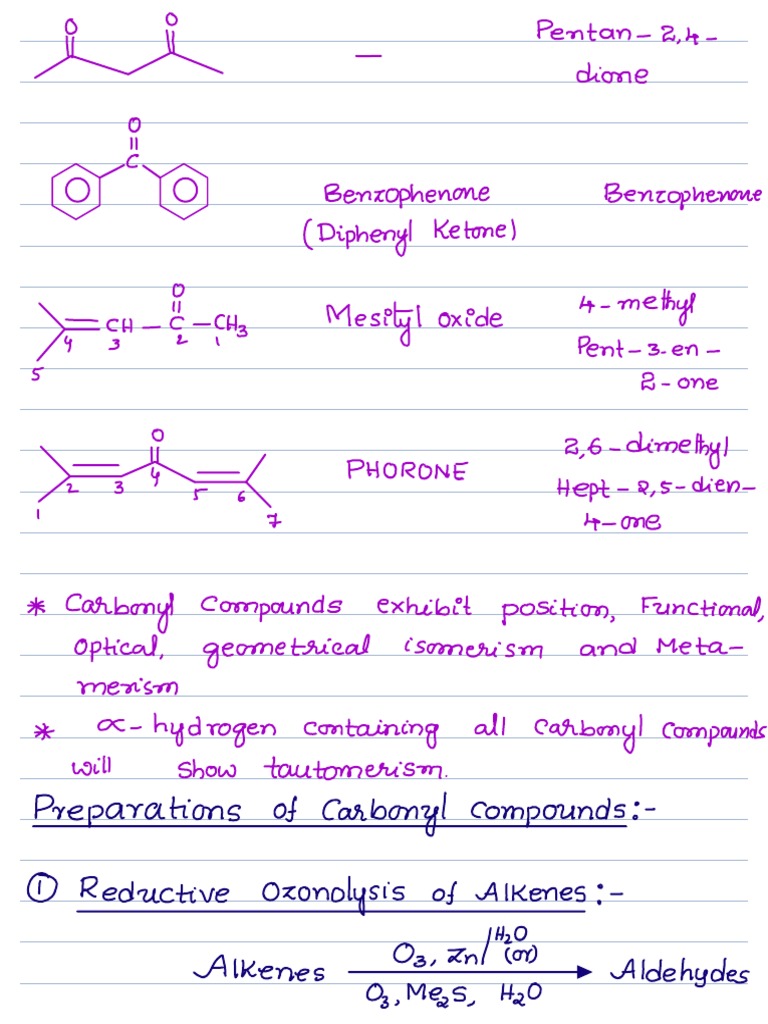 O O
— Pentan – 2,4 –
dione
O
C
Benzophenone Benzophenone
(Diphenyl Ketone)
O
CH – C – CH3 Mesityl oxide 4 – methyl
5 4 3 2 1 Pent – 3-en –
2 – one
O
PHORONE 2,6 – dimethyl
1 2 3 4 5 6 7 Hept – 2,5 – dien –
4 – one
* Carbonyl Compounds exhibit position, Functional,
Optical, geometrical isomerism and Meta–
merism
* α – hydrogen containing all carbonyl compounds
will show tautomerism.
Preparations of Carbonyl Compounds:-
① Reductive Ozonolysis of Alkenes:-
Alkenes O3, Zn/H2O (or) Aldehydes
O3, Me2S, H2O